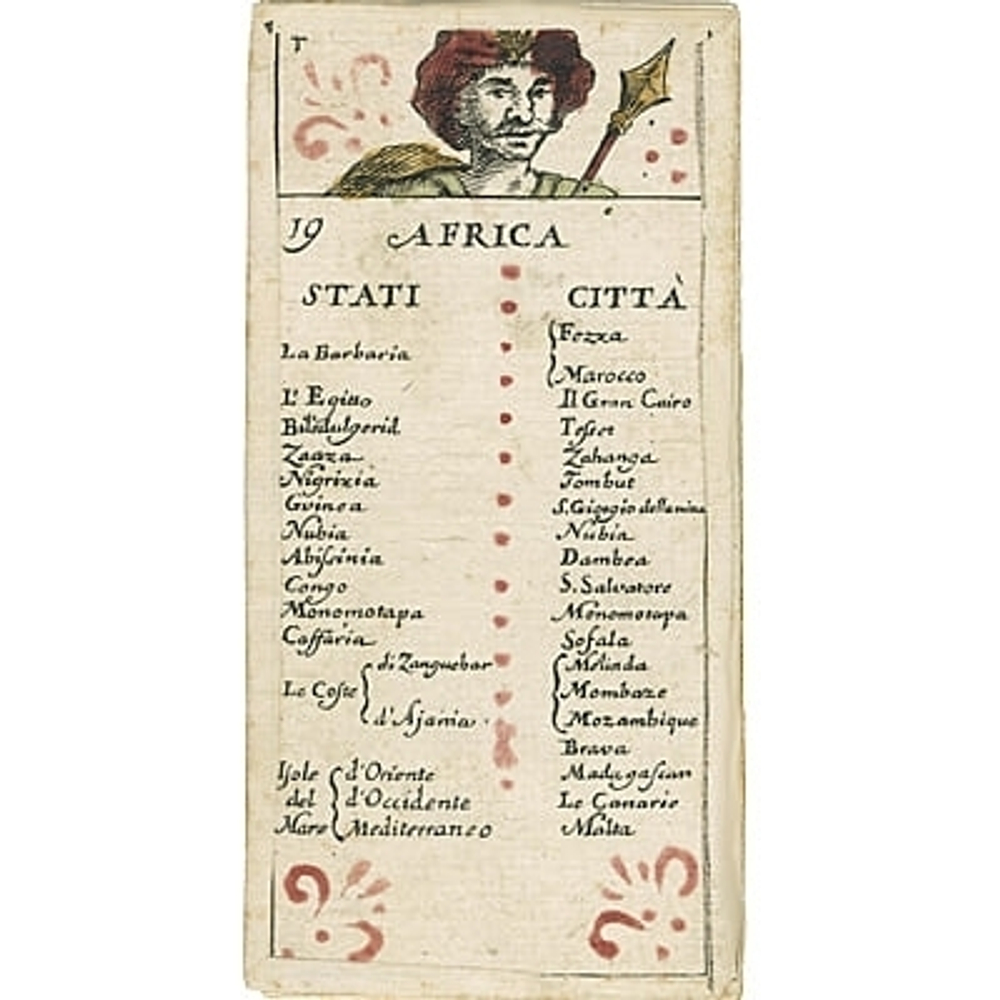 T
19 AFRICA
STATI CITTÀ
La Barbaria Fezza
Marocco
L'Egitto Il Gran Cairo
Biledulgerid Tesset
Zaaza Zahanga
Nigrizia Tombut
Guinea S. Giorgio della mina
Nubia Nubia
Abissinia Dambea
Congo S. Salvatore
Monomotapa Monomotapa
Caffaria Sofala
di Zanguebar Melinda
Le Coste Mombaze
d'Ajania Mozambique
Brava
Isole d'Oriente Madagascar
del d'Occidente Le Canarie
Mare Mediterraneo Malta